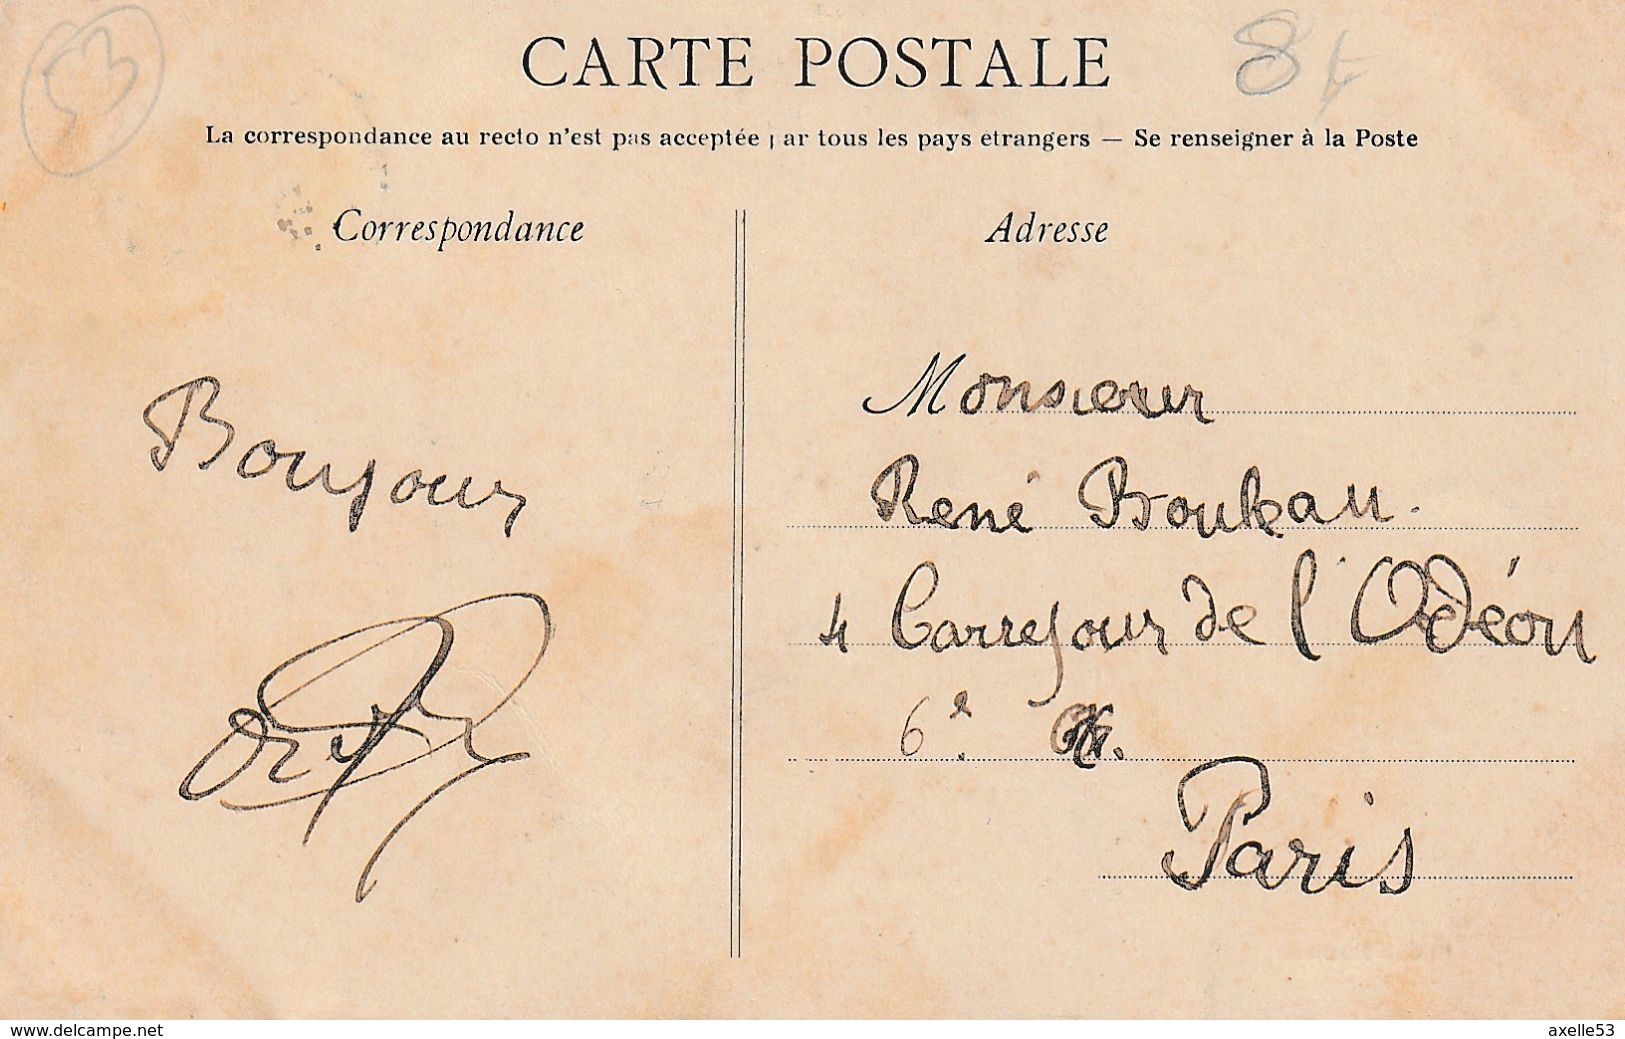 53
CARTE POSTALE
8
La correspondance au recto n'est pas acceptée par tous les pays étrangers — Se renseigner à la Poste
Correspondance
Bonjour
Adresse
Monsieur
René
4 Carrefour de l'Odéon
6e.
Paris
www.delcampe.net
axelle53